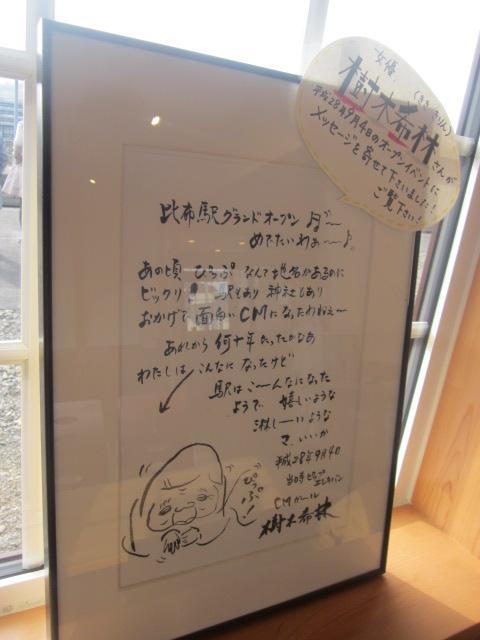 女優
(ききききりん)
樹木希林さんが
平成28年9月4日のオープンイベントに
メッセージを寄せて下さいました!
ご覧下さい!
比布駅グランドオープン
めでたいわぁ〜♪
あの頃 ぴっぷ なんて地名があるのに
ビックリ! 駅もあり 神社もあり
おかげで 面白いCMになったわねぇ〜
あれから 何十年たったかなあ
わたしは こんなに なったけど
駅はこ〜んなになった
ようで 嬉しいような
淋しーいような
マ、いいか
平成28年9月4日
当時ピップ
エレキバン
CMガール
樹木希林
ぴっぷぷ!